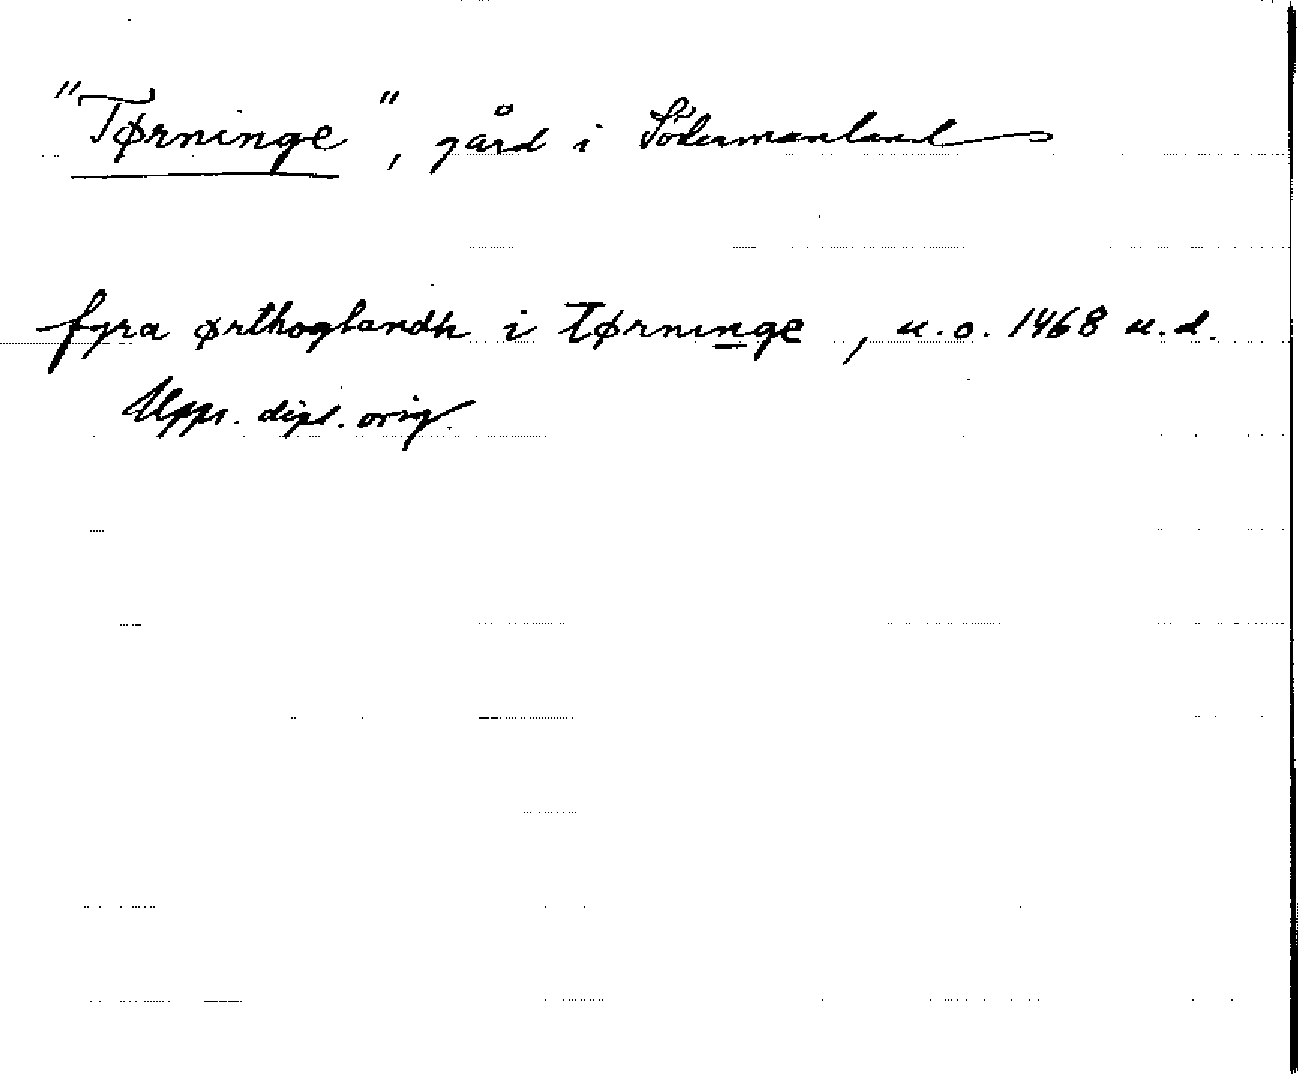 "Tørninge", gård i Södermanland
fyra ørthoglandh i tørninge, u.o. 1468 u.d.
Upps. dipl. orig.